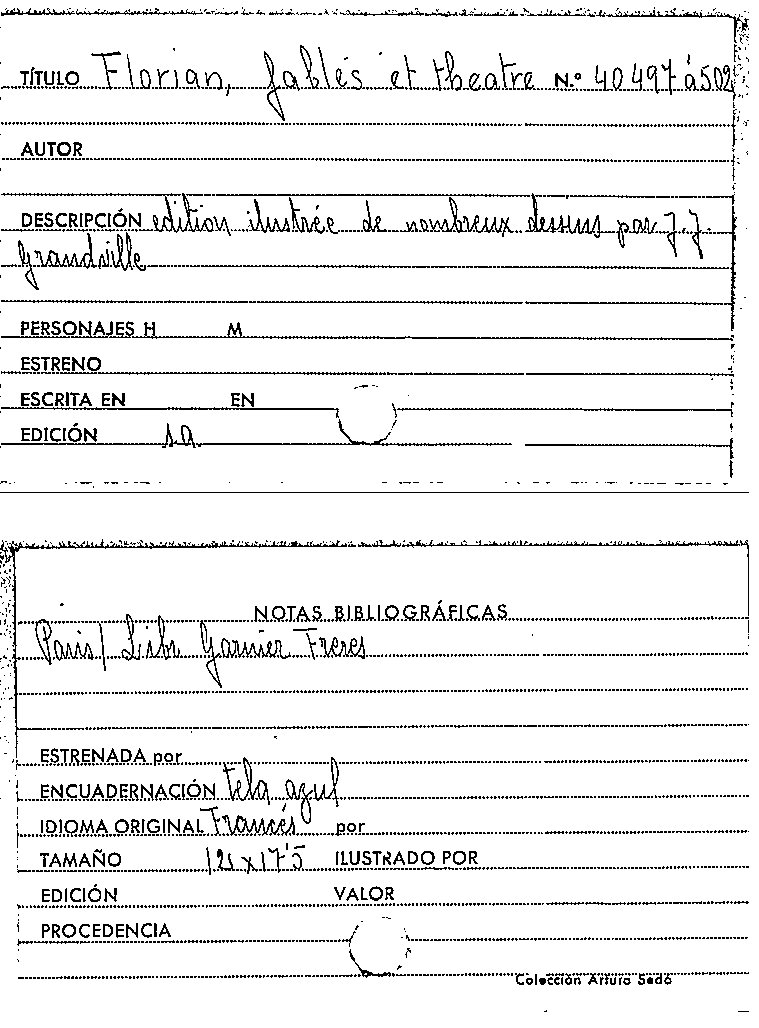 TÍTULO Florian, fables et theatre N.º 40497 à 502
AUTOR
DESCRIPCIÓN edition ilustrée de nombreux dessins par J.J.
Grandville
PERSONAJES H M
ESTRENO
ESCRITA EN EN
EDICIÓN s.a.
NOTAS BIBLIOGRÁFICAS
Paris/ Libr Garnier Freres
ESTRENADA por
ENCUADERNACIÓN tela azul
IDIOMA ORIGINAL Francés por
TAMAÑO x17'5 ILUSTRADO POR
EDICIÓN VALOR
PROCEDENCIA
Colección Arturo Sedó